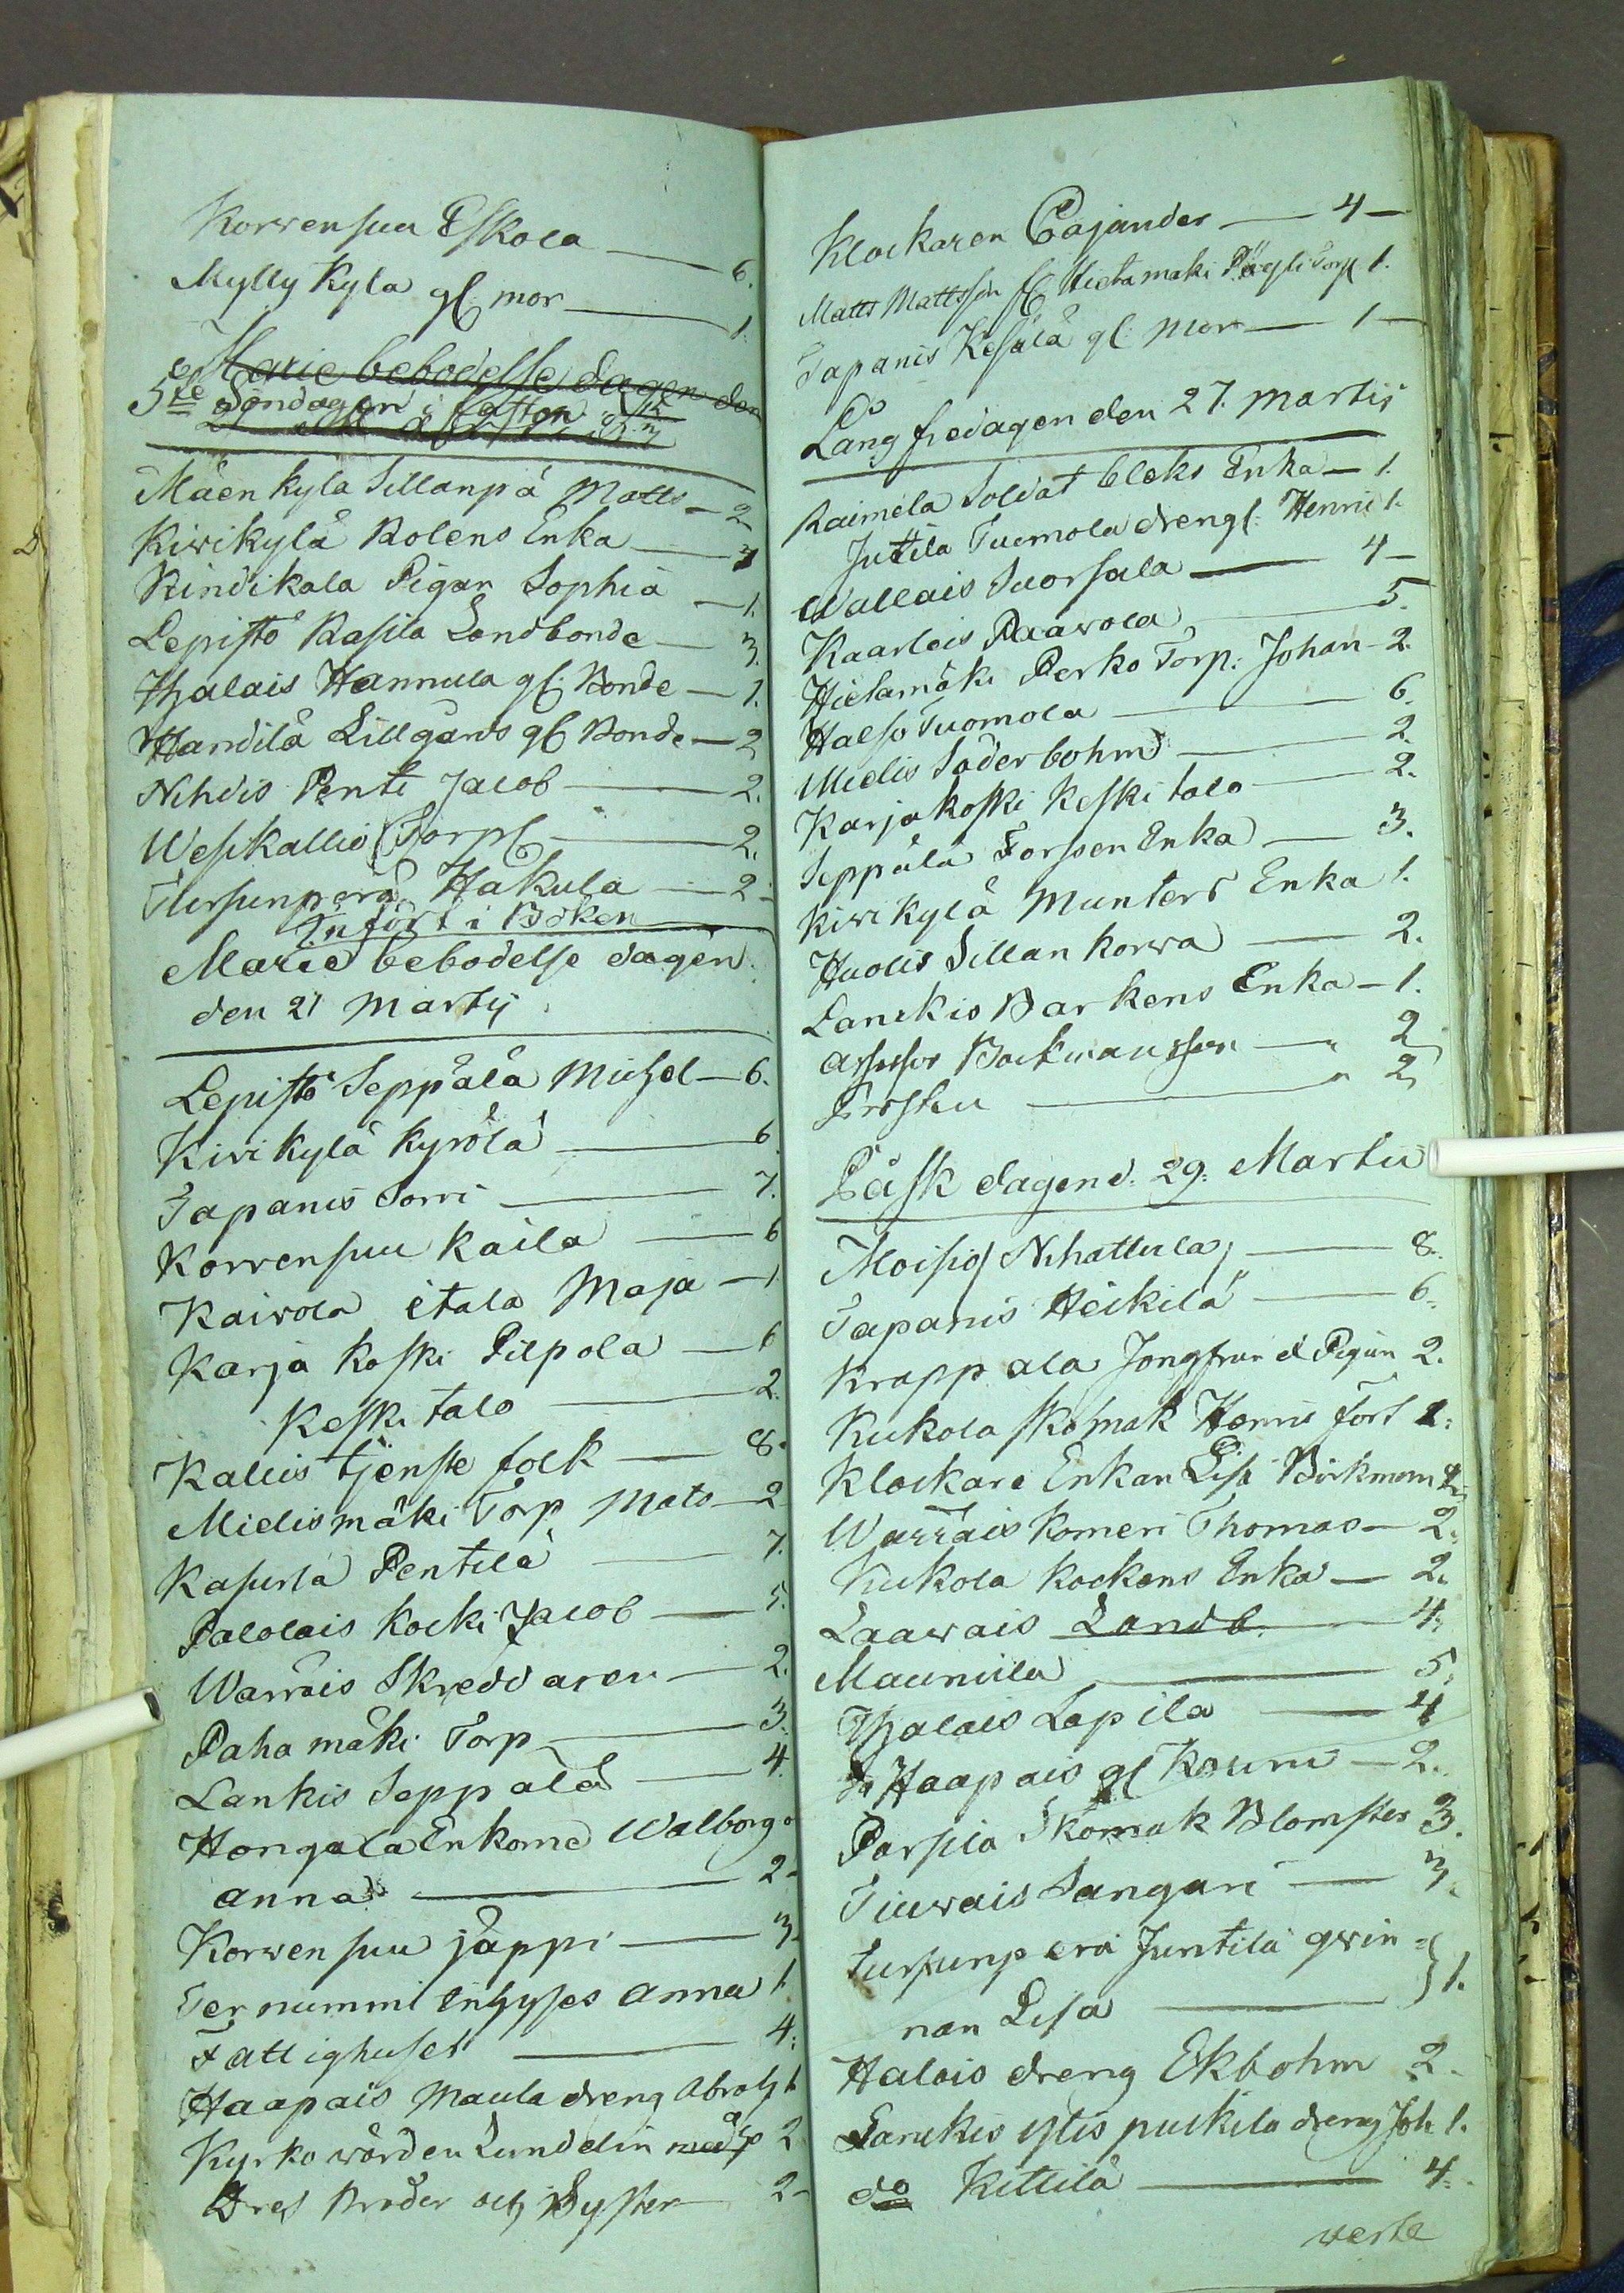 Korvensuu Eskola — 6.
Mylly Kyla gl mor — 1
Marie bebodelse dagen den
5te Söndagen i faston
Mäenkyla Sillanpä Matts — 2
Kirikylä Rolens Enka — 3
Kindikala Pigan Sophia — 1.
Lepistö Kasila Landbonde — 3.
Thalais Hannula gl. Bonde — 1.
Handilä Lillgårds gl Bonde — 2
Nihdis Penti Jacob — 2.
Wesikallio Torp — 2.
Tursunperä Hakula — 2
Infört i Boken
Marie bebodelse dagen
den 21 Martij
Lepistö Seppälä Michel — 6.
Kirikylä Kyrölä — 6
Tapanis Sorri — 7.
Korvensuu Kaila — 6
Kairola itala Maja — 1
Karja koski Pilpola — 6
Keski talo — 2.
Kaliis tjenste folk — 8.
Midismäki Torp Mats — 2
Kasurla Pentilä — 7.
Palolais Kocki Jacob — 5.
Warrais Skreddaren — 2.
Paha mäki Torp — 3.
Lankis Seppälä — 4.
Hongala Enkorne Walborg o
Anna — 2
Korvensuu jäppi — 3
Ternummi Inhyses Anna 1
Fattighuset — 4.
Haapais Maula dreng Abrah 1
Kyrko wärden Lundelin 2
Dres Broder och Syster 2
Klockaren Cajander — 4 —
Matts Mattsson fr Hietamäki Päyli Torp 1.
Tapanis Kesälä gl. Mor — 1 —
Lång fredagen den 27. Martij
Raimela Soldat Bleks Enka — 1.
Juttila Tuomola drengl. Henric 1.
Wallais Suorsala — 4 —
Kaarlois Paavola — 5.
Hietamäki Perko Torp. Johan — 2.
Halso Tuomola — 6.
Midis Söderbohm — 2.
Karjakoski Keski talo — 2.
Seppälä Forssen Enka — 3.
Kirikylä Munters Enka 1.
Huolis Sillan korva — 2.
Lanckis Barkens Enka — 1.
Assessor Bockmansson — 2
— 2
Påsk dagen d. 29. Martii
Moisio Nihattula — 8.
Tapanis Heikilä — 6.
Krappala Jongfrun et Pigan 2.
Kukola skomak Henric fört 1.
Klockare Enkan Lisa Birkmom
Warrais Komeri Thomas — 2.
Kukola Kockens Enka — 2.
Laavais Landb. — 4.
Mauniila — 5.
Thalais Lapila — 4
Haapais gl Kauni — 2.
Parsila Skomak Blomster 3.
Tiuvais Sangari — 3.
Tursunperä Juntila qvin=
nan Lisa — 1.
Halois dreng Ekbohm 2.
Lanckis ytis puckila dreng Joh 1.
do Kittilä — 4.
verte